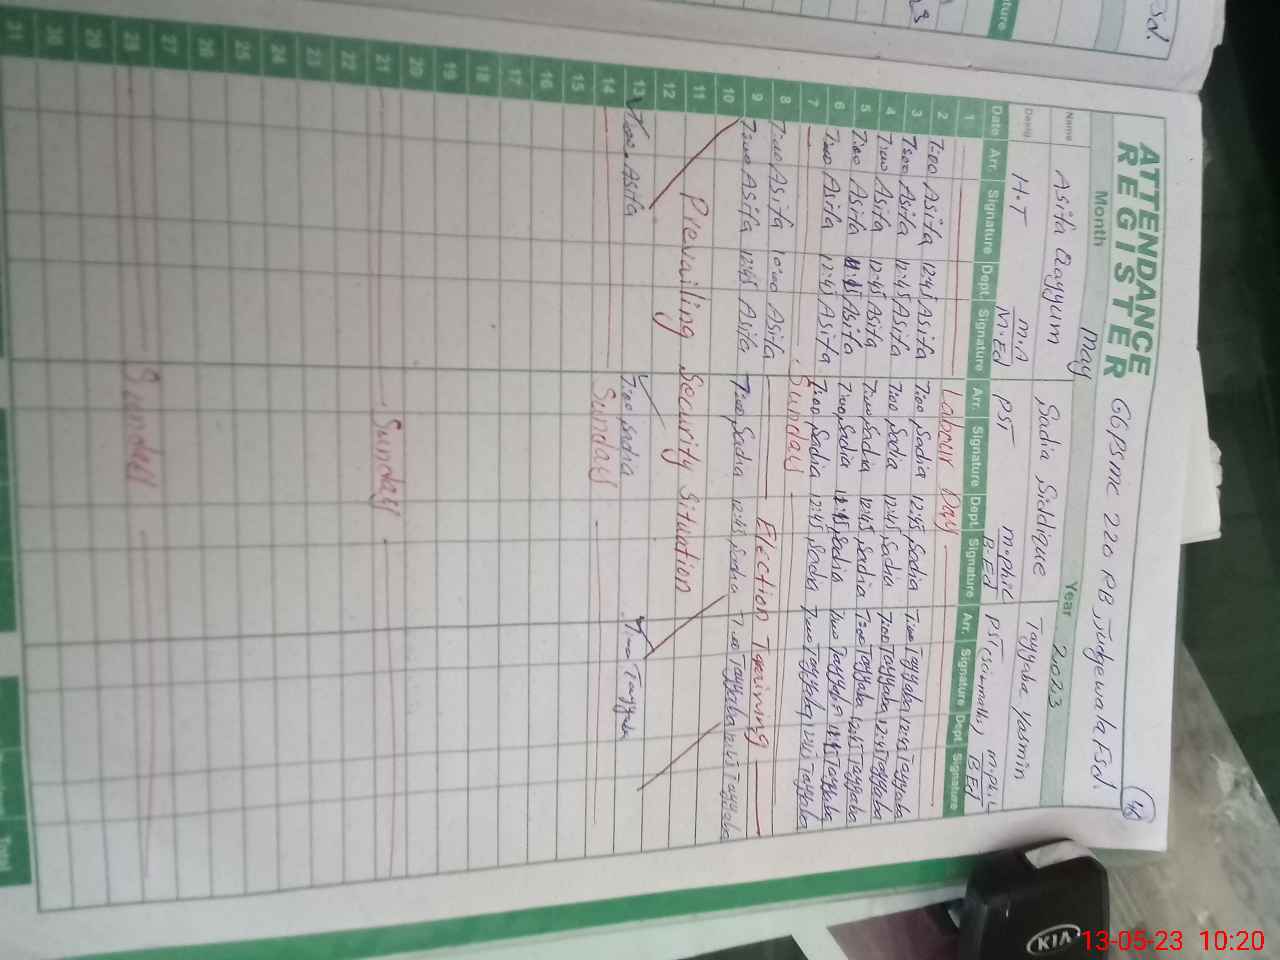 ATTENDANCE
REGISTER
GGPSMC 220 RB Judgewala Fsd.
46
Month May Year 2023
Name Asifa Qayyum Sadia Siddique Tayyaba Yasmin
Desig H.T M.A M.Ed PST M.phil B.Ed PST (sci-math) M.phil B.Ed
Date Arr. Signature Dept. Signature Arr. Signature Dept. Signature Arr. Signature Dept. Signature
1 Labour Day
2 7:00 Asifa 12:45 Asifa 7:00 Sadia 12:45 Sadia 7:00 Tayyaba 12:45 Tayyaba
3 7:00 Asifa 12:45 Asifa 7:00 Sadia 12:45 Sadia 7:00 Tayyaba 12:45 Tayyaba
4 7:00 Asifa 12:45 Asifa 7:00 Sadia 12:45 Sadia 7:00 Tayyaba 12:45 Tayyaba
5 7:00 Asifa Asifa 7:00 Sadia Sadia 7:00 Tayyaba Tayyaba
6 7:00 Asifa 12:45 Asifa 7:00 Sadia 12:45 Sadia 7:00 Tayyaba 12:45 Tayyaba
7 Sunday
8 7:00 Asifa 10:00 Asifa Election Tarining
9 7:00 Asifa 12:45 Asifa 7:00 Sadia 12:45 Sadia 7:00 Tayyaba 12:45 Tayyaba
10
11 Prevailing Security Situation
12
13 7:00 Asifa 7:00 Sadia 7:00 Tayyaba
14 Sunday
15
16
17
18
19
20
21 Sunday
22
23
24
25
26
27
28 Sunday
29
30
31
Total
KIA
13-05-23 10:20